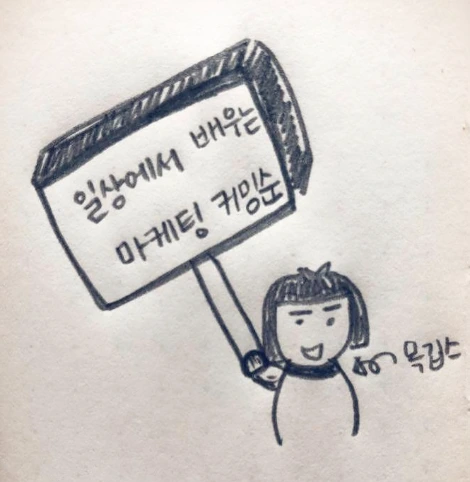 일상에서 배우는
마케팅 커밍순
목깁스